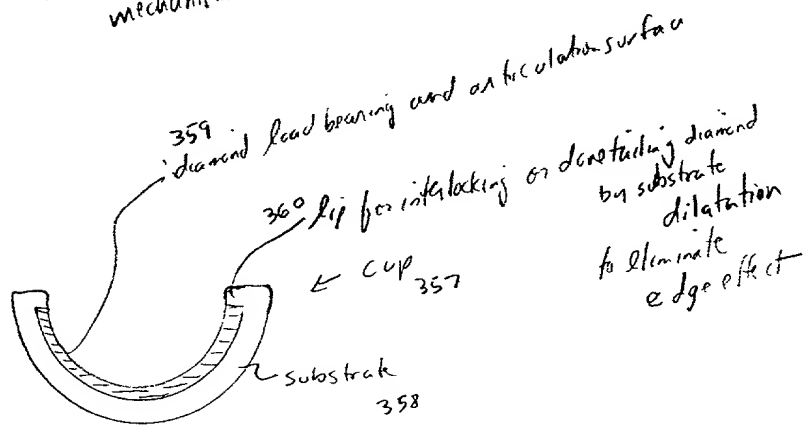 mechanism
359
diamond load bearing and articulation surface
360 lip for interlocking or dovetailing diamond
by substrate
dilatation
to eliminate
edge effect
← cup
357
substrate
358